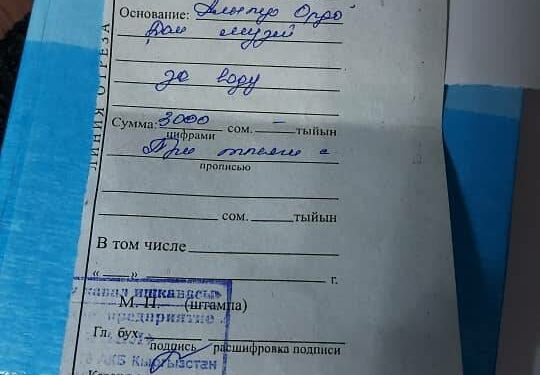 ЛИНИЯ ОТРЕЗА
Основание: Алтын Ордо
Дом музей
за воду
Сумма: 3000 сом. – тыйын
цифрами
Три тысячи с
прописью
сом. тыйын
В том числе
“ ” г.
М. П. (штампа)
Гл. бух.
подпись расшифровка подписи
ишканасы
предприятие
АКБ Кыргызстан